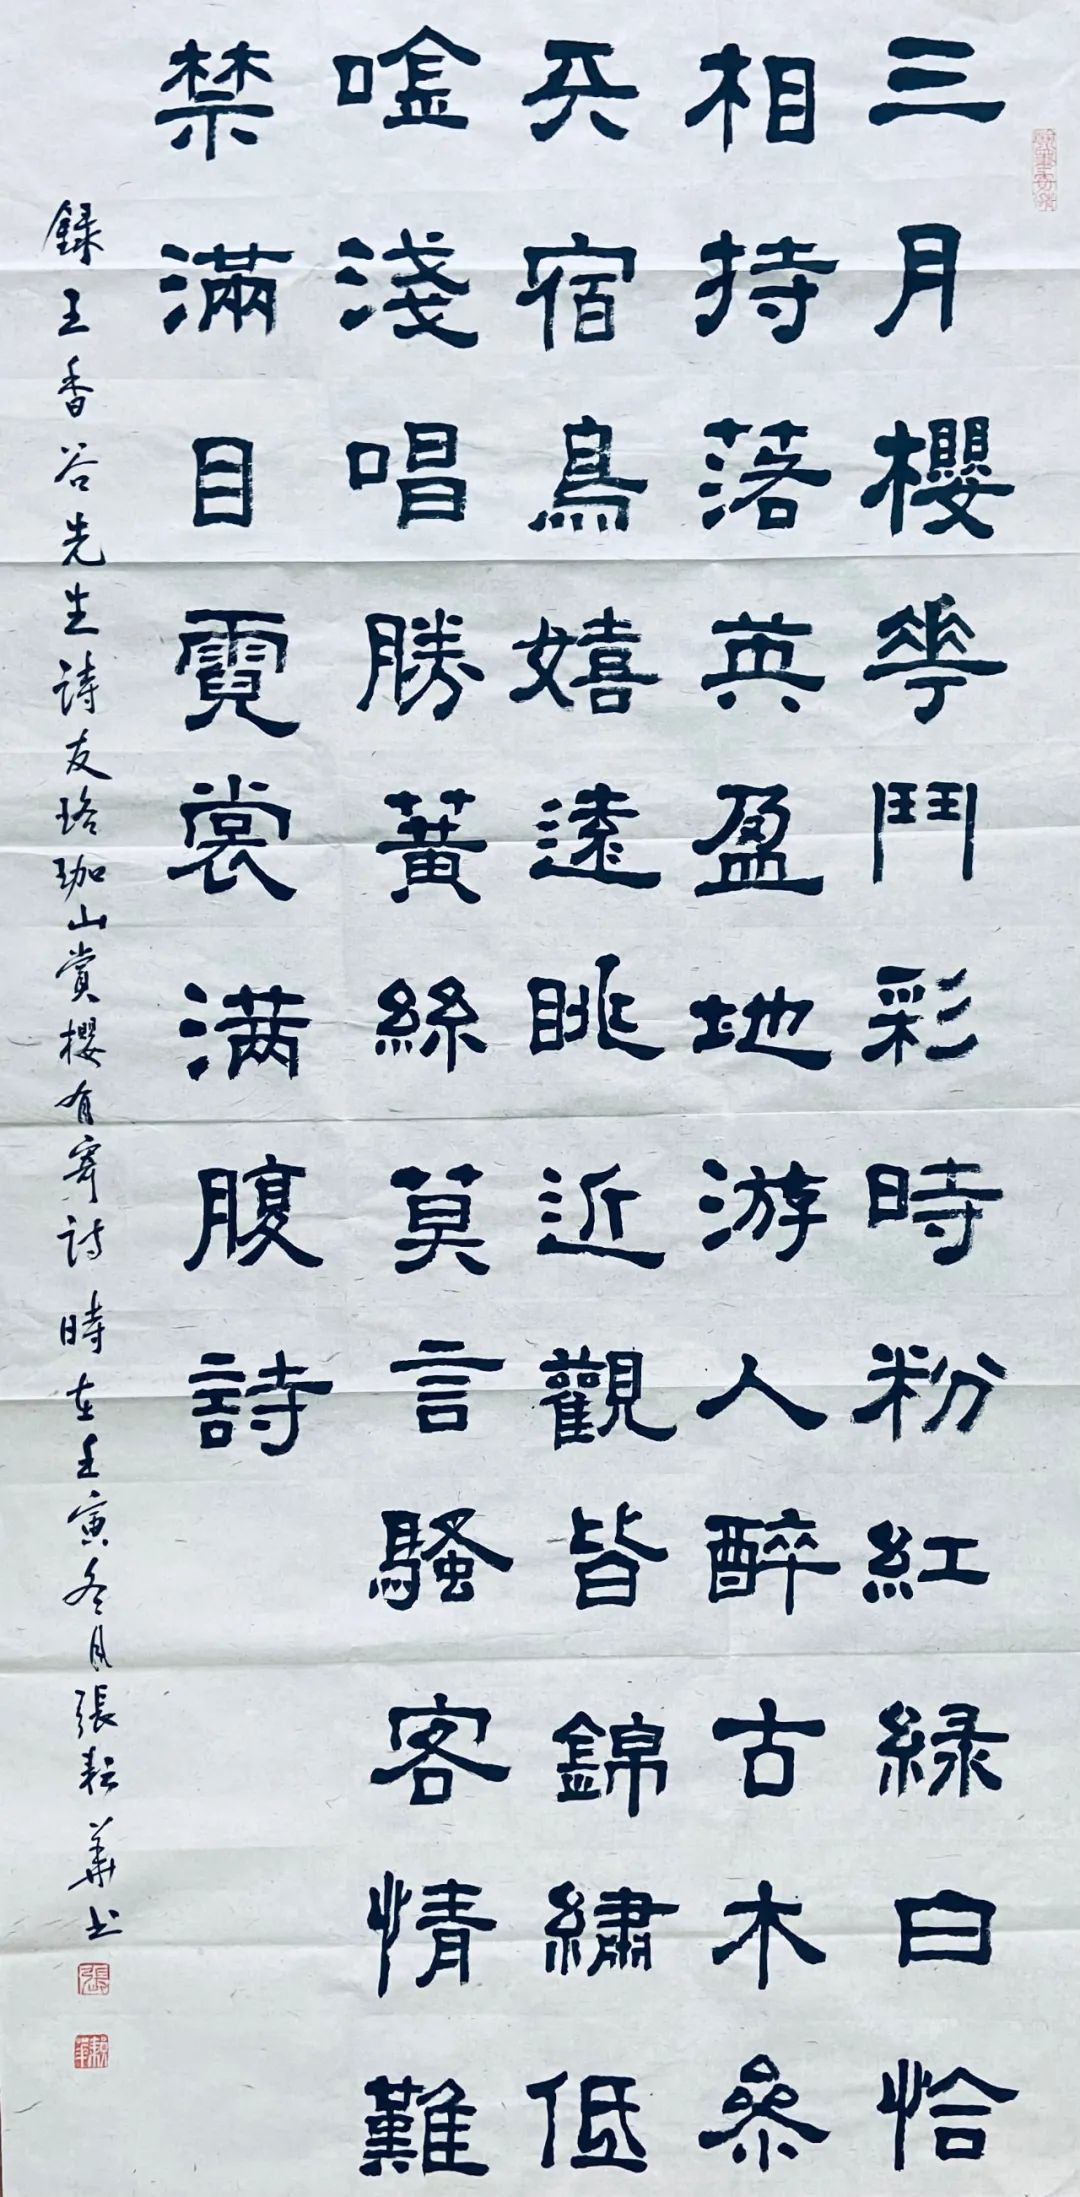 三月櫻花鬥彩時粉紅緑白恰
相持落英盈地游人醉古木參
天宿鳥嬉遠眺近觀皆錦繡低
唫淺唱勝簧絲莫言騷客情難
禁滿目霓裳满腹詩
録王香谷先生詩友珞珈山賞櫻有寄詩時在壬寅冬月張耘華书